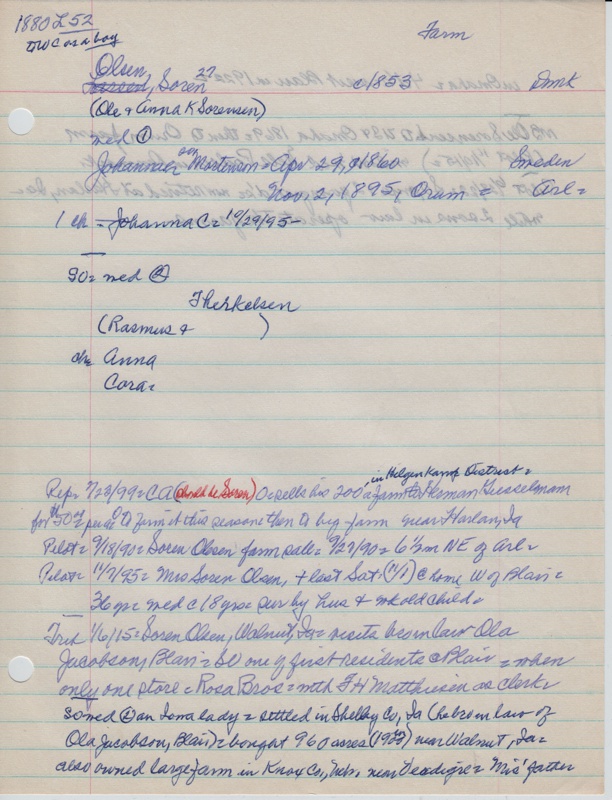 1880 L 52
Farm
Olsen, Soren 27 c1853 Dmk
(Ole & Anna K Sorensen)
med ①
Johannah Mortensen = Apr 29, c1860 Sweden
Nov. 2, 1895, Orum = Arl =
1 ch = Johanna C = 10/29/95 -
SO = med ②
Therkelsen
(Rasmus & )
chn Anna
Cora =
in Helgen Kamp District =
Rep = 7/28/99 = CA (should be Soren) O sells his 200 a farm to Herman Giesselmann
for $50 per a = O to farm it this season then to big farm near Harlan, Ia
Pilot = 9/18/90 = Soren Olsen farm sale = 9/27/90 = 6½ m NE of Arl =
Pilot = 11/7/95 = Mrs Soren Olsen, + last Sat. (11/1) @ home W of Blair =
36 yr = med c18 yrs = sur by hus & wk old child =
Trib 1/6/15 = Soren Olsen, Walnut, Ia = visits bro in law Ola
Jacobson, Blair = SO one of first residents @ Blair = when
only one store = Rosa Bros = with FH Matthiesen as clerk =
SO med ② an Iowa lady = settled in Shelby Co, Ia (he bro in law of
Ola Jacobson, Blair) = bought 960 acres near Walnut, Ia =
also owned large farm in Knox Co., Neb. near Verdigre = Mrs' father